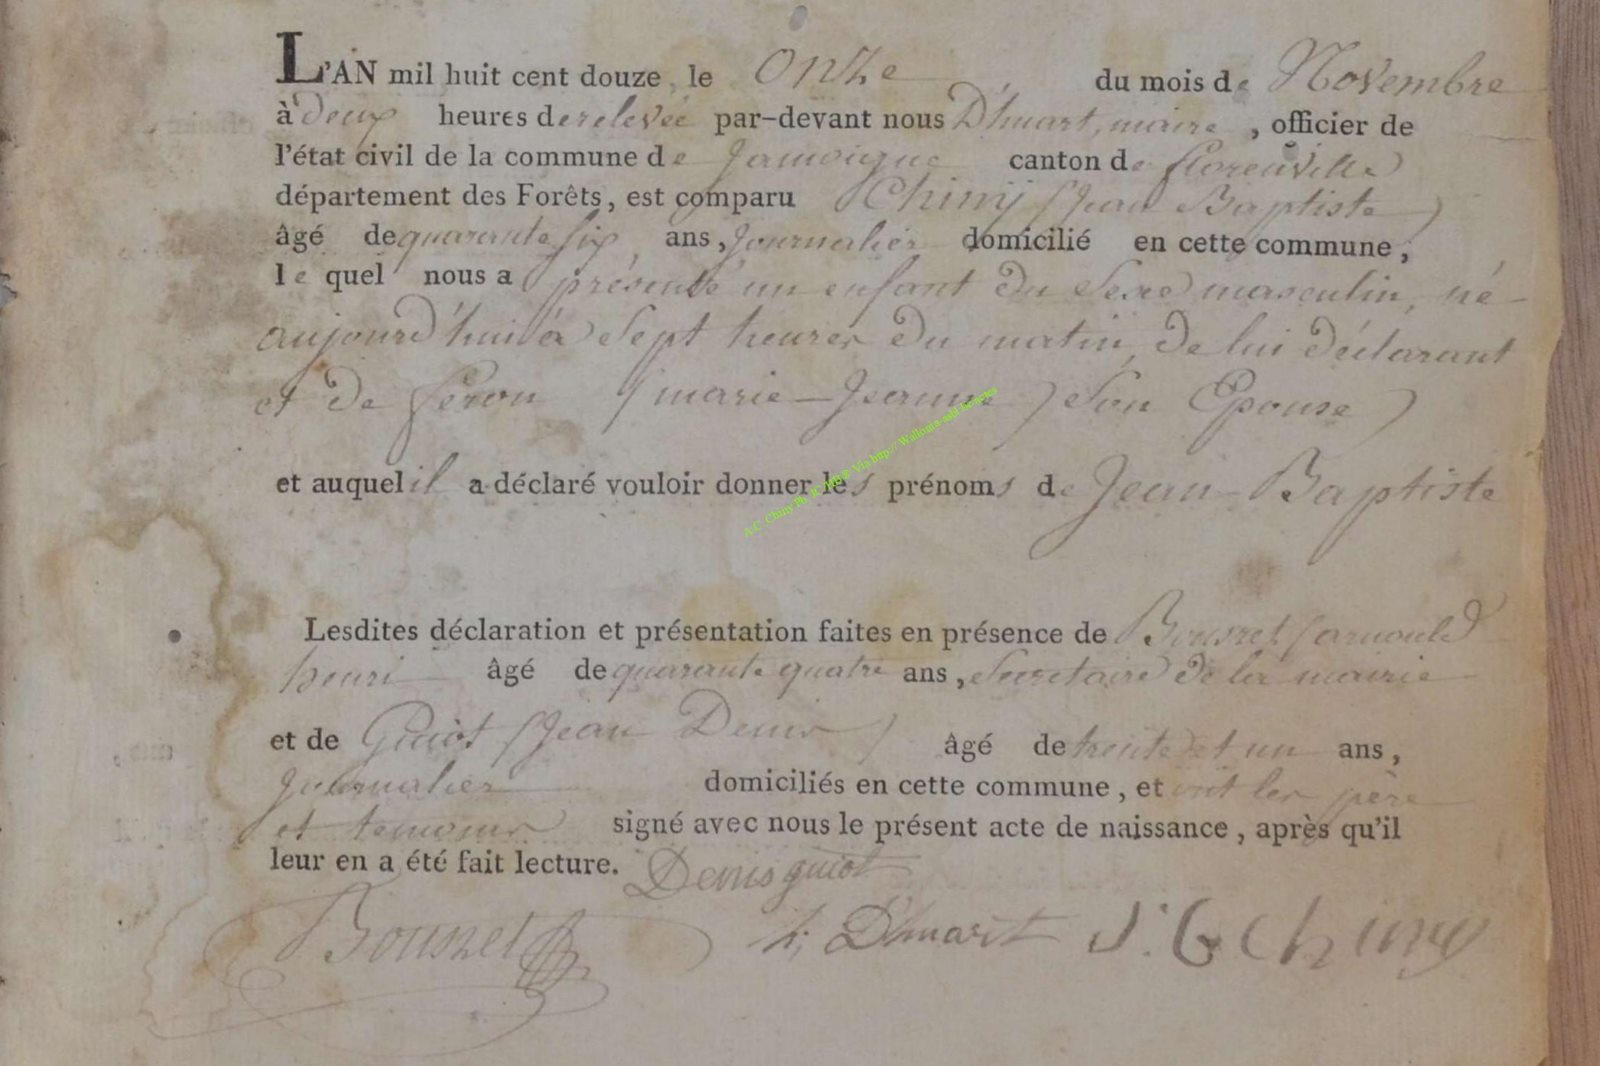 L'AN mil huit cent douze, le Onze du mois de Novembre
à deux heures de relevée par-devant nous D'huart, maire, officier de
l'état civil de la commune de Jamoigne canton de florenville
département des Forêts, est comparu Chiny (Jean Baptiste)
âgé de quarante six ans, Journalier domicilié en cette commune;
le quel nous a présenté un enfant du Sexe masculin, né
aujourd'hui à Sept heures du matin, de lui déclarant
et de feron (marie-Jeanne) Son Epouse)
et auquel il a déclaré vouloir donner les prénoms de Jean-Baptiste
Lesdites déclaration et présentation faites en présence de Bousret (arnould
henri âgé de quarante quatre ans, Secretaire de la mairie
et de Guiot (Jean Denis) âgé de trente et un ans,
Journalier domiciliés en cette commune, et ont les père
et temoins signé avec nous le présent acte de naissance, après qu'il
leur en a été fait lecture. Denis guiot
Bousret h; D'huart J:b Chiny